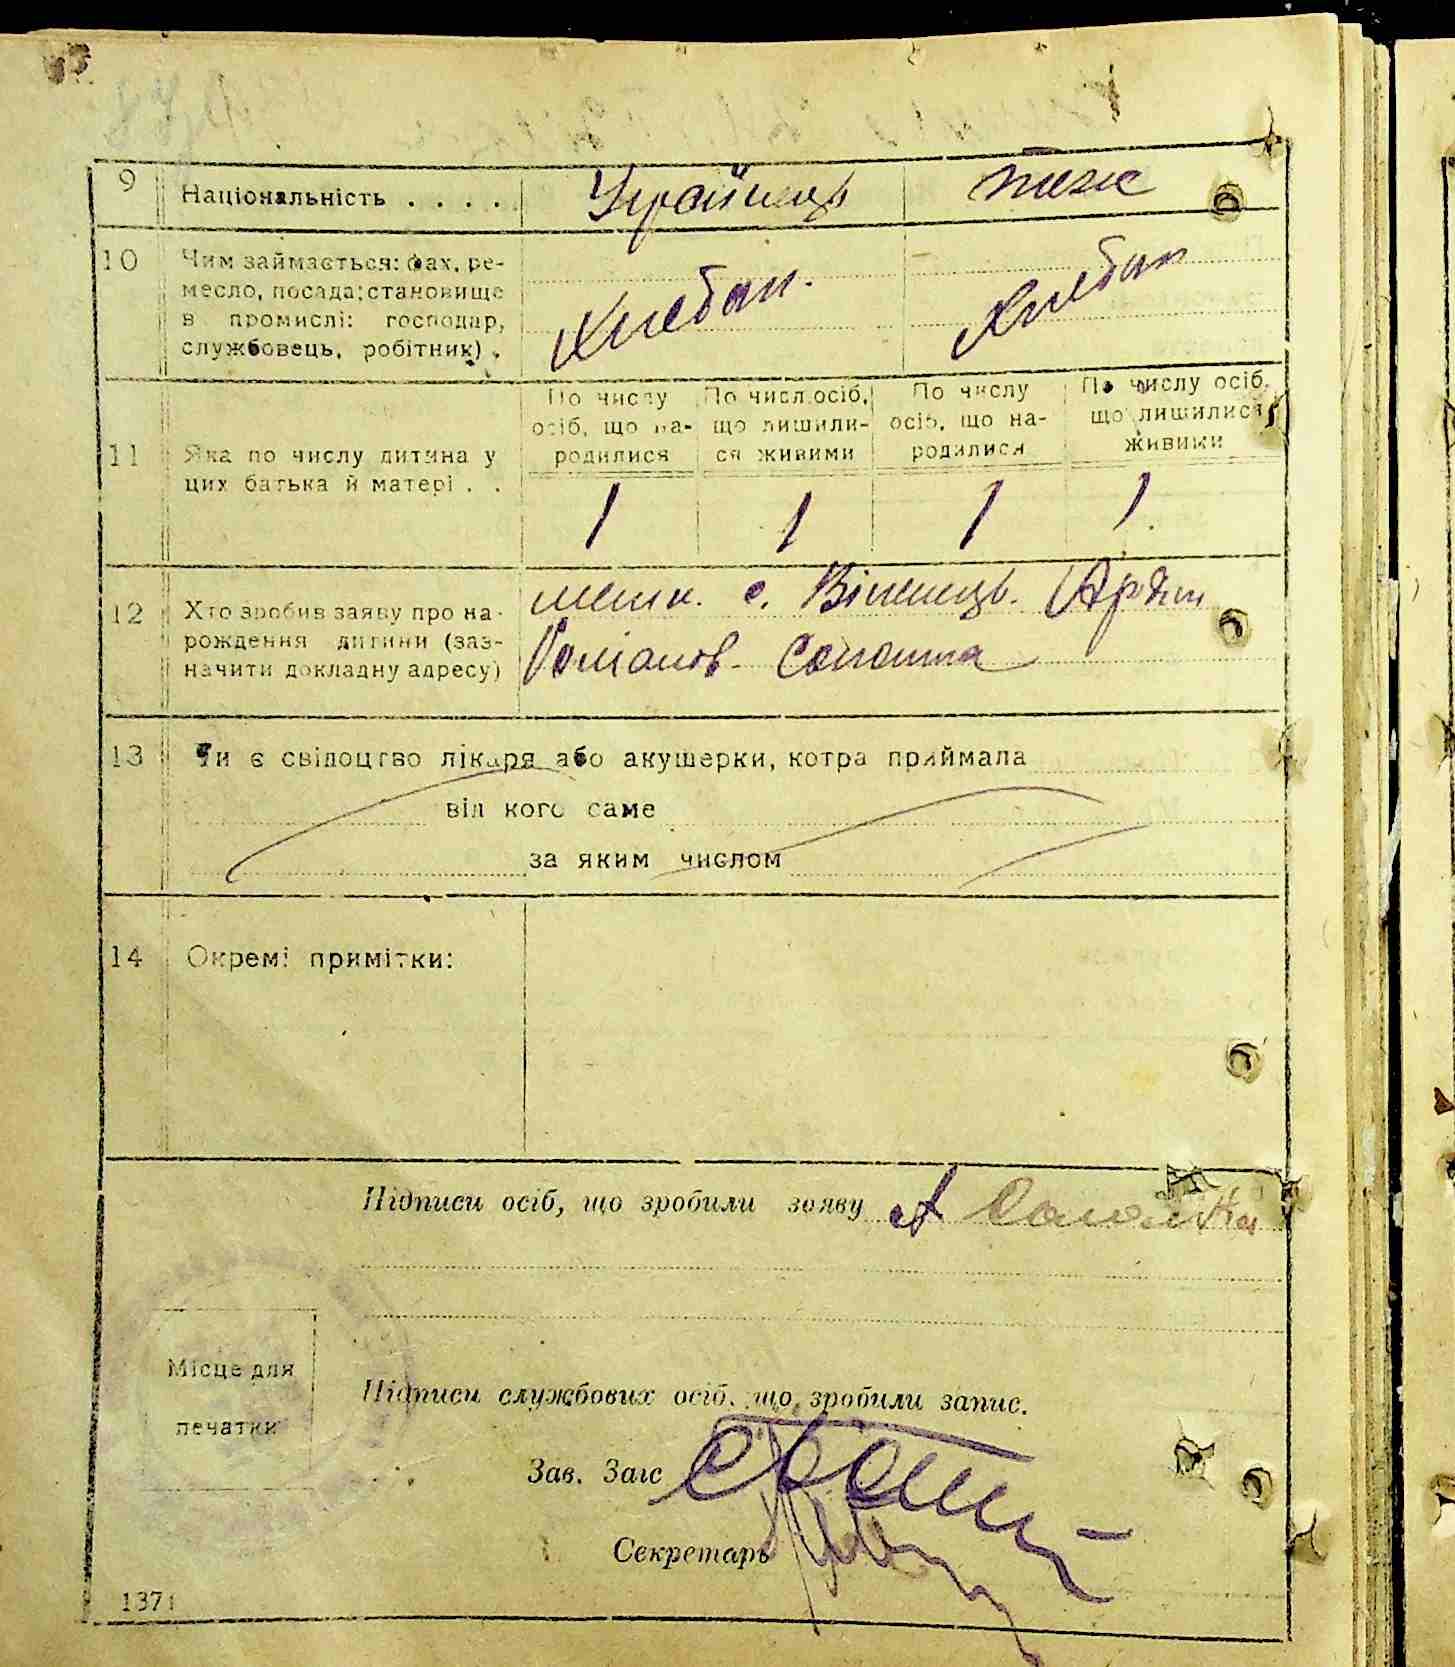 9 Національність . . . . . Українець теж
10 Чим займається: фах, ре-
месло, посада; становище
в промислі: господар,
службовець, робітник) .
Хлебоп. Хлебоп
По числу осіб, що на-родилися
По числ. осіб, що лишили-ся живими
По числу осіб, що на-родилися
По числу осіб, що лишилися живими
11 Яка по числу дитина у
цих батька й матері . .
1 1 1 1
12 Хто зробив заяву про на-
рождення дитини (заз-
начити докладну адресу)
мешк. с. Вінинець. Артим
Романов. Солошка
13 Чи є свідоцтво лікаря або акушерки, котра приймала
від кого саме
за яким числом
14 Окремі примітки:
Підписи осіб, що зробили заяву А Солошка
Місце для
печатки
Підписи службових осіб, що зробили запис.
Зав. Загс
Секретарь
1371